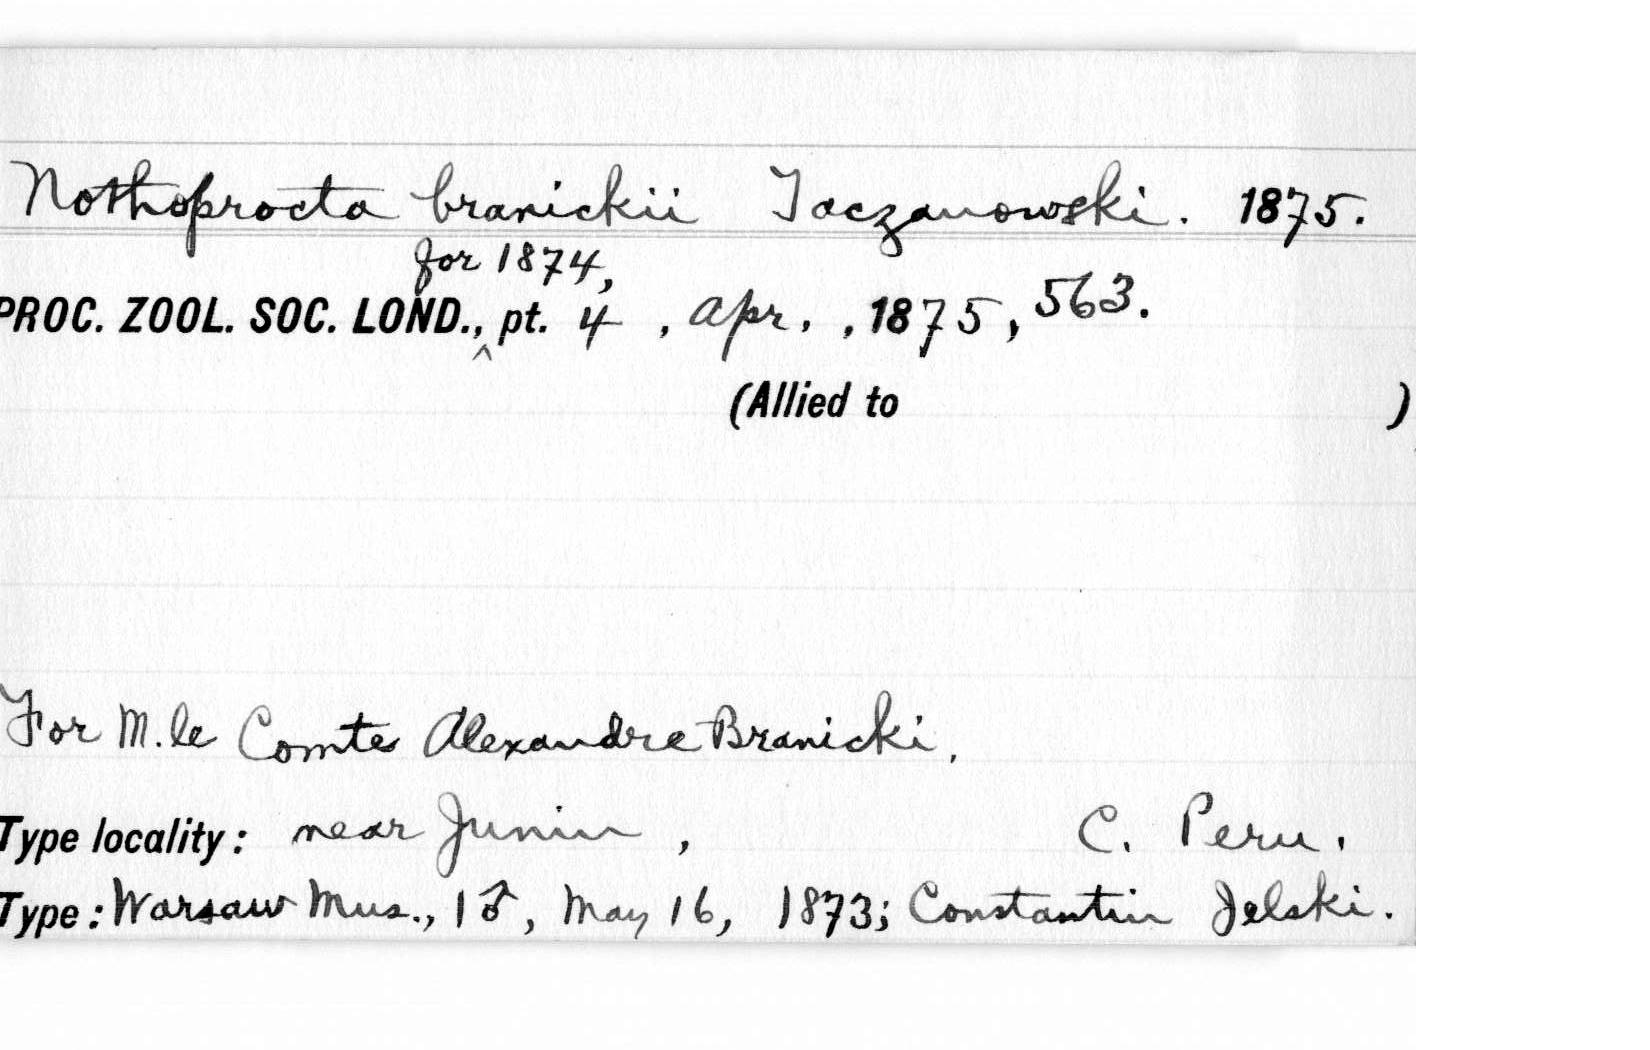 Nothoprocta branickii Taczanowski. 1875.
for 1874,
PROC. ZOOL. SOC. LOND., ^ pt. 4 , Apr. , 1875, 563.
(Allied to )
For M. le Comte Alexandre Branicki,
Type locality: near Junin , C. Peru.
Type: Warsaw Mus., 1♂, May 16, 1873; Constantin Jelski.